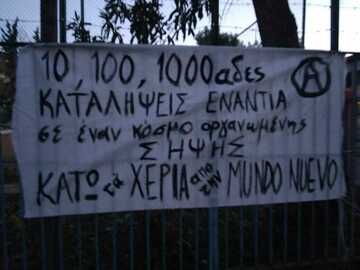 10, 100, 1000αδες Ⓐ
ΚΑΤΑΛΗΨΕΙΣ ΕΝΑΝΤΙΑ
σε έναν κόσμο οργανωμένης
ΣΗΨΗΣ
ΚΑΤΩ τα ΧΕΡΙΑ από την MUNDO NUEVO